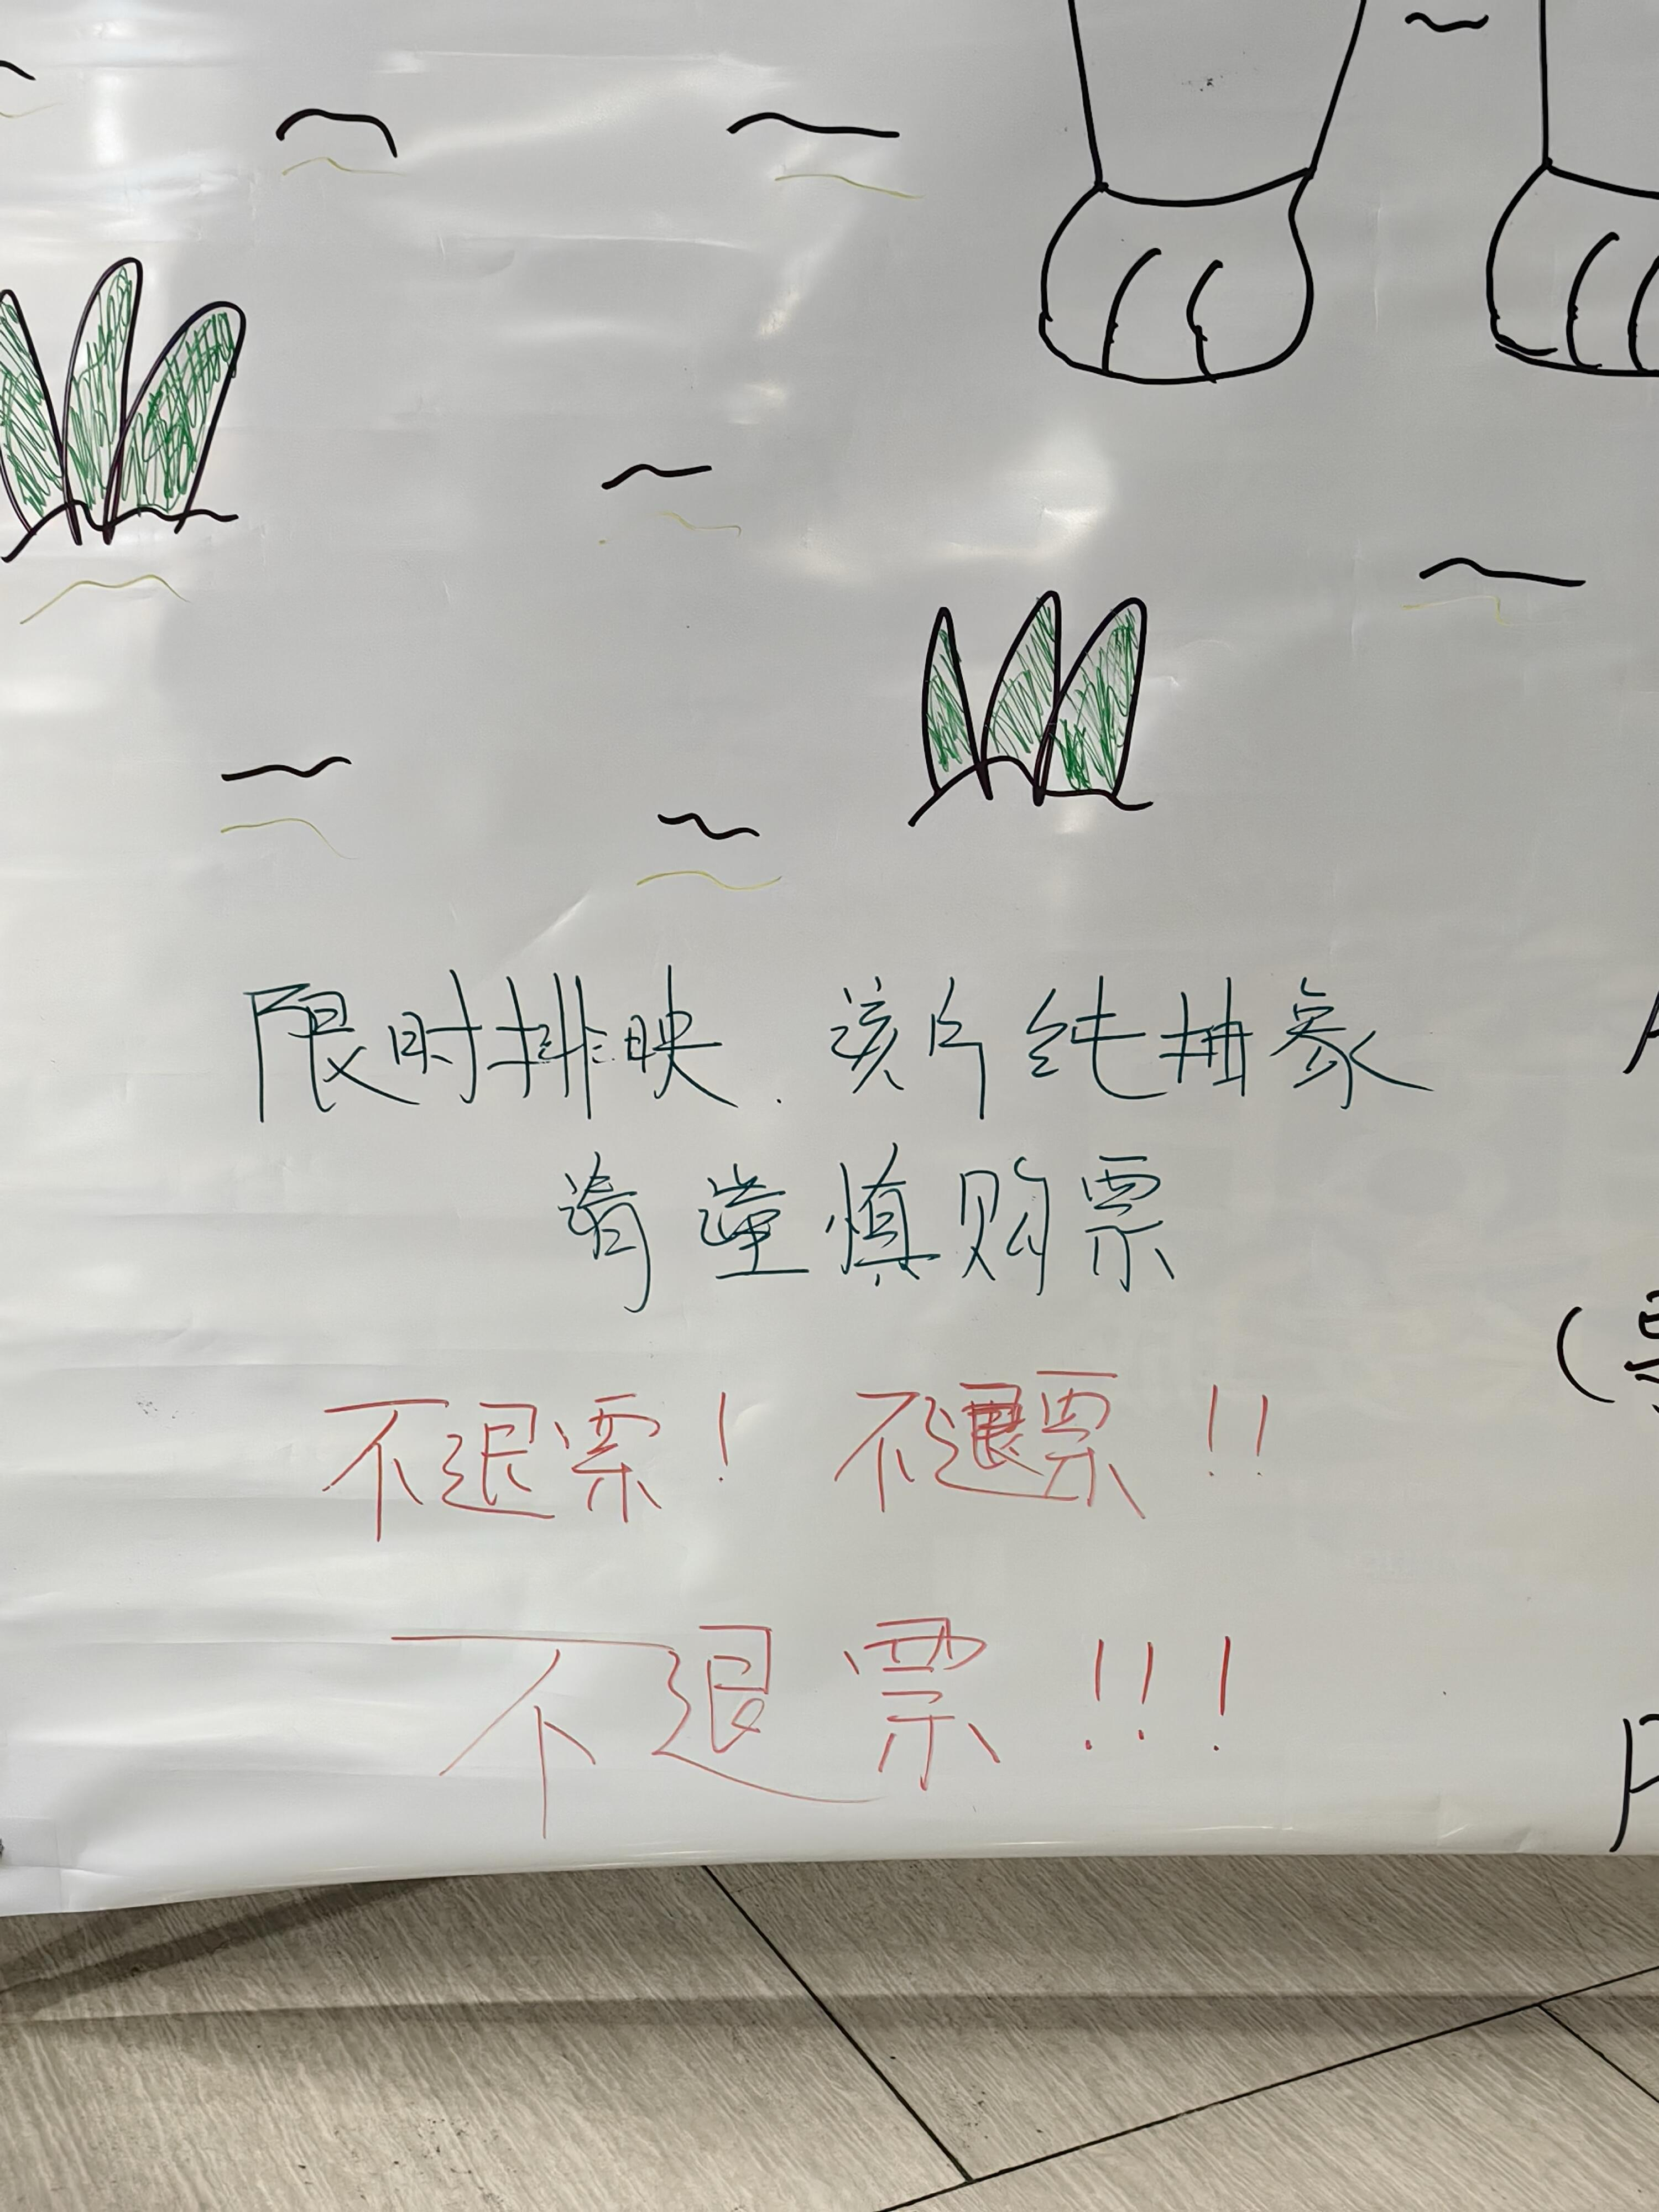 限时排映.该片纯抽象
请谨慎购票
不退票! 不退票!!
不退票!!!